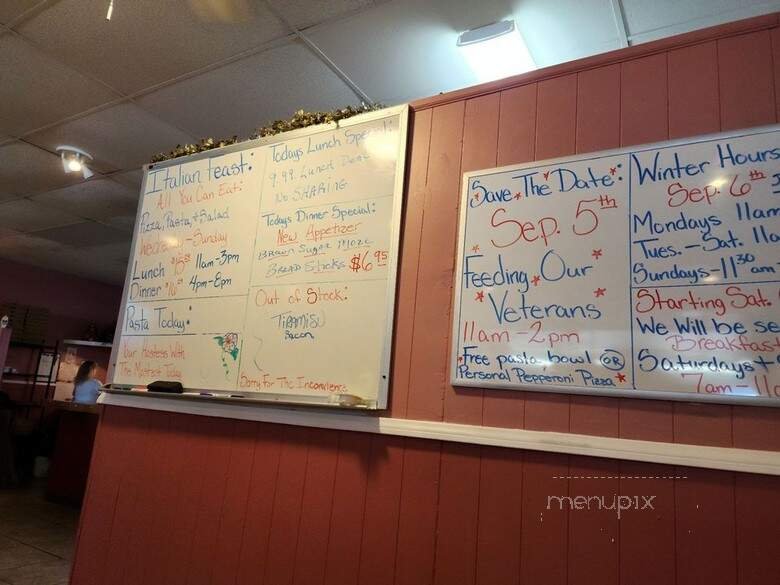 Italian Feast:
All You Can Eat:
Pizza, Pasta, & Salad
Sunday
Lunch 11am-3pm
Dinner 4pm-8pm
Pasta Today:
Our Hostess With
The Mostest Today
Todays Lunch Special:
9.99 Lunch
No SHARING
Todays Dinner Special:
New Appetizer
BROWN Sugar
BREAD Sticks $6.95
Out of Stock:
TIRAMISU
BACON
Sorry For The Inconvience
Save The Date:
Sep. 5th
Feeding Our
Veterans
11am-2pm
Free pasta bowl OR
Personal Pepperoni Pizza
Winter Hours
Sep. 6th
Mondays 11am
Tues. - Sat. 11a
Sundays-11:30 am
Starting Sat.
We Will be se
Breakfast
Saturdays +
7am-11
menupix